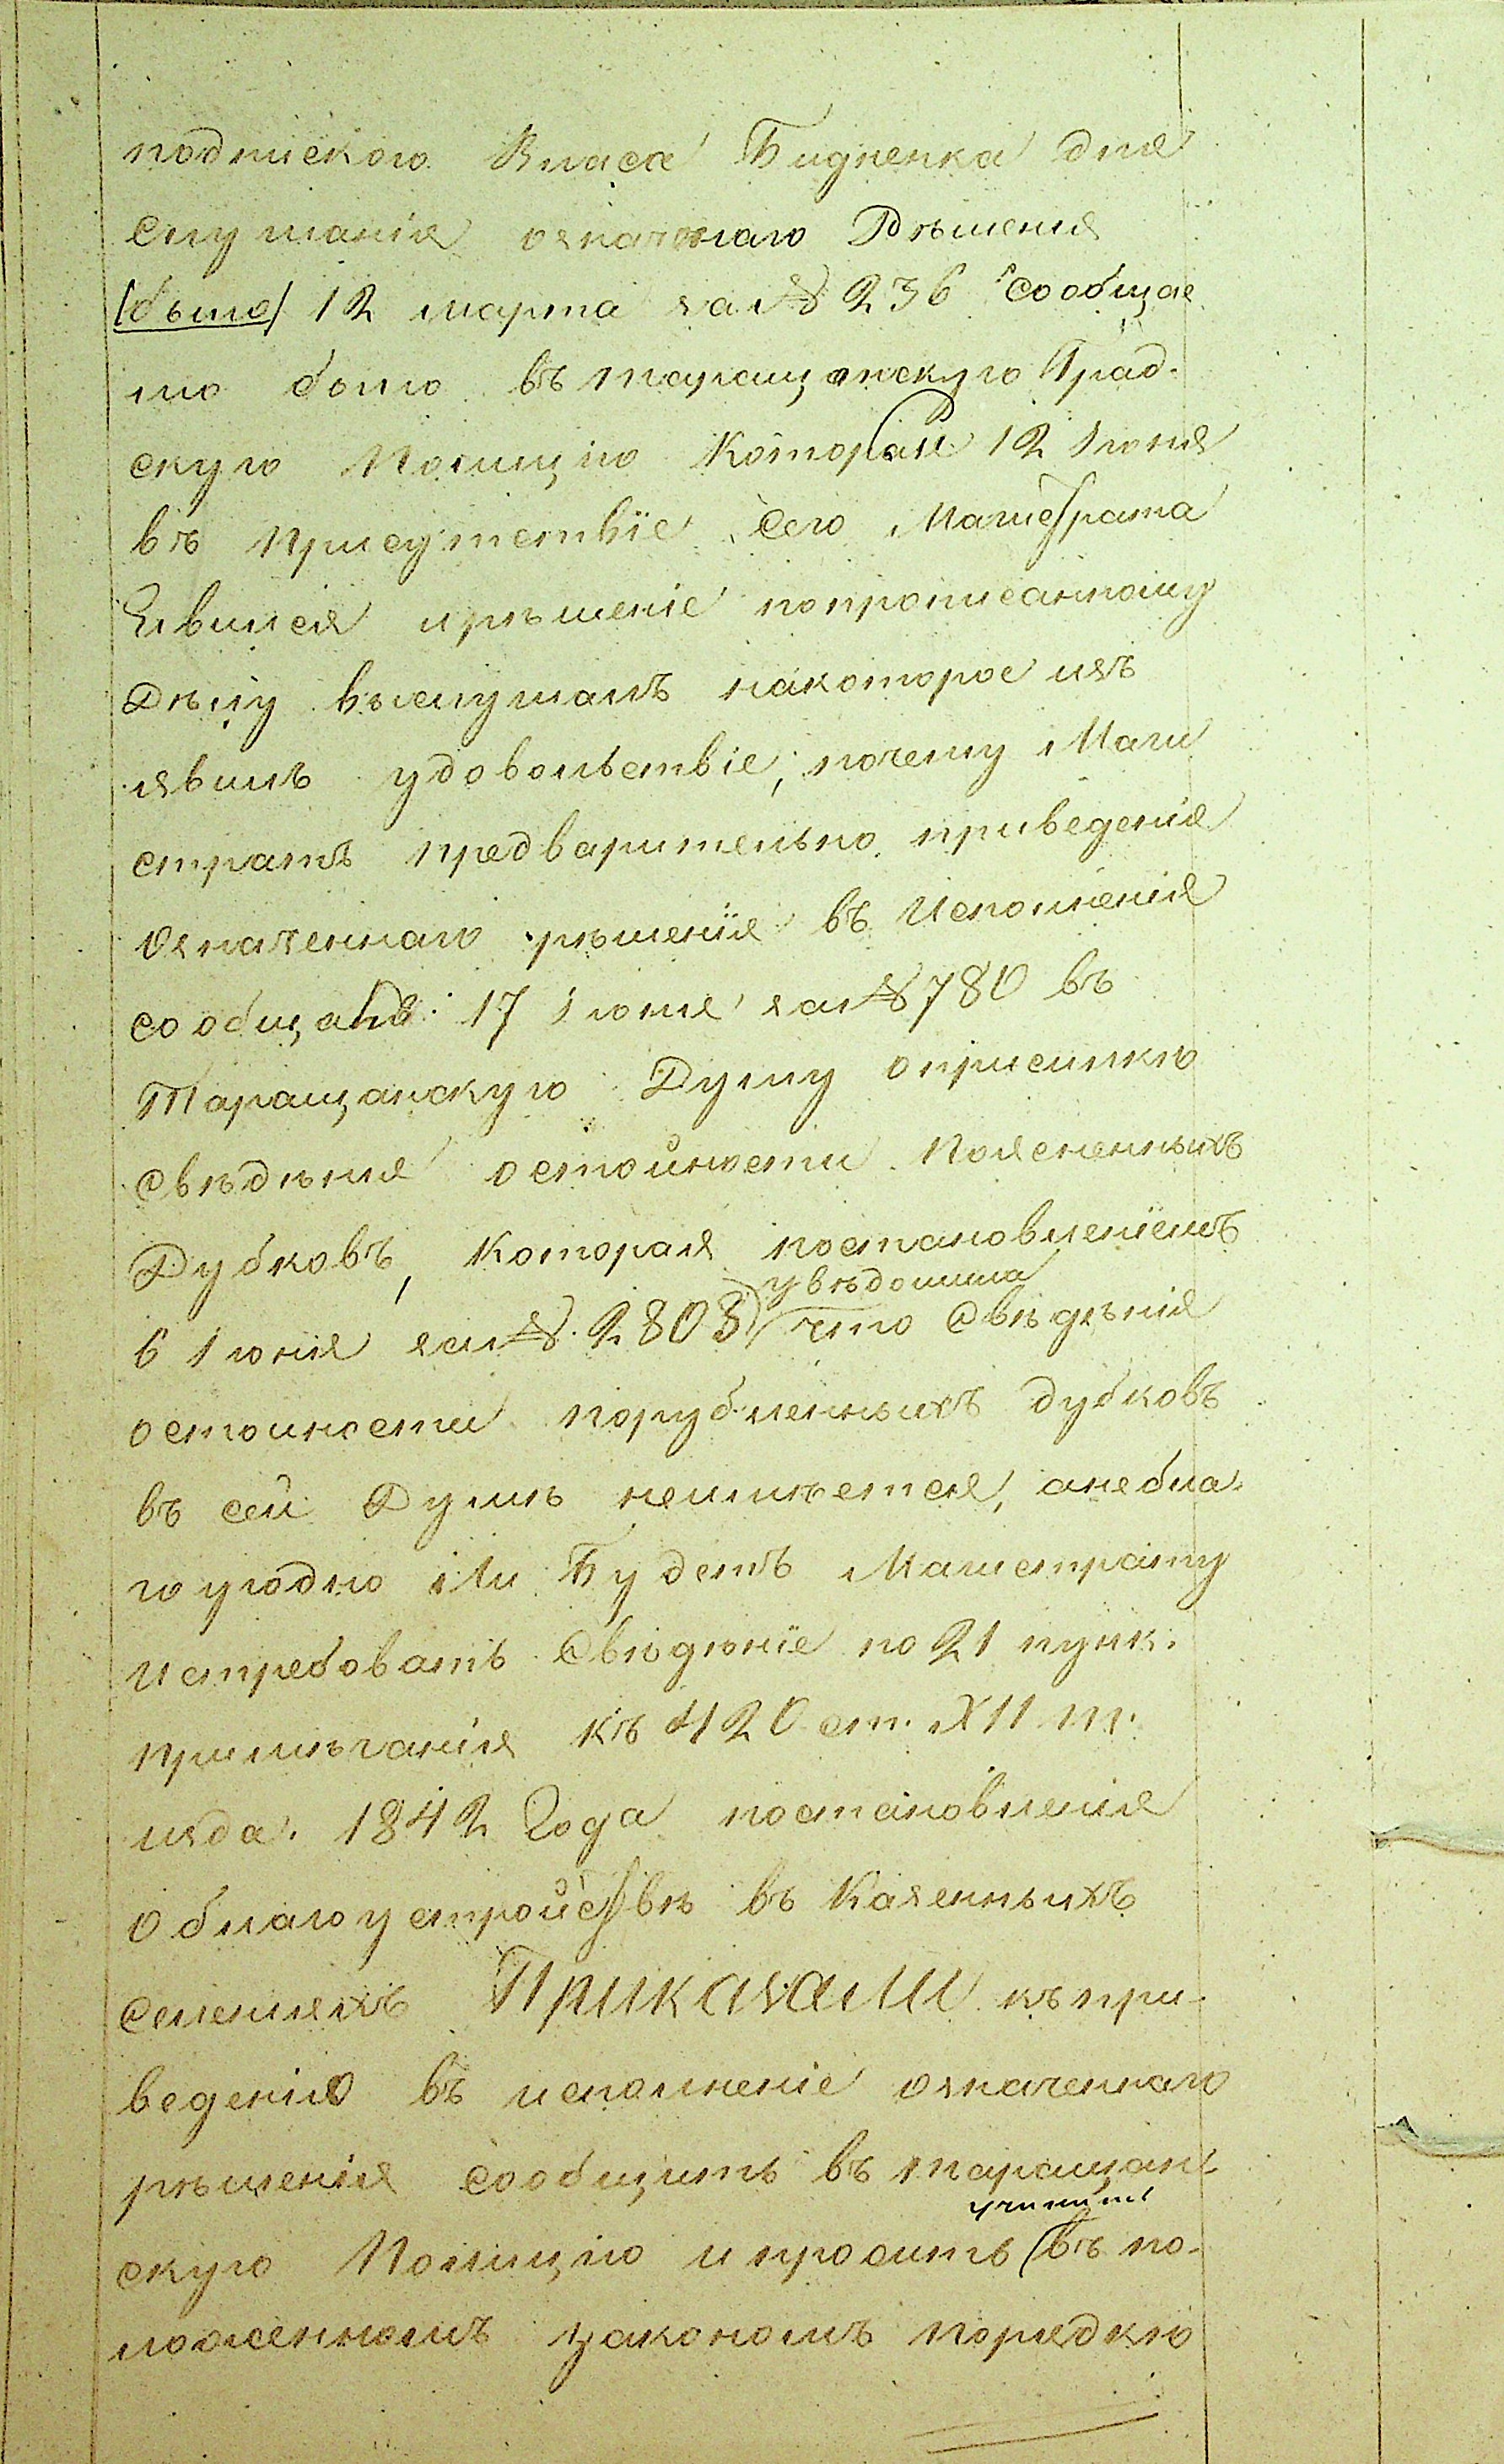 подпискою Власа Бидненка для
слушанія означенаго Рѣшенія
/было/ 12 марта за № 236 сообщае
мо было въ таращанскую Град-
скую Полицію Который 12 Іюня
въ Присутствіе сего Магистрата
Явился и рѣшеніе попрописанному
Дѣлу выслушалъ накоторое изъ
явилъ удовольствіе, почему Маги
стратъ предварительно приведенія
Означеннаго рѣшенія въ Исполненія
сообщалъ 17 Іюня за № 780 въ
Таращанскую Думу оприсылкѣ
свѣдѣнія остоимости Поясненныхъ
Дубковъ, Которая постановленіемъ
увѣдомила
6 Іюня за № 2803) что Свѣденія
остоимости порубленныхъ дубковъ
въ сей Думѣ неимѣется, анебла-
гоугодно ли Будетъ Магистрату
Истребовать Свѣденіе по 21 пунк.
примѣчанія къ 420 ст. XII т.
изда. 1842 Года постановленія
Облагоустройствѣ въ Казенныхъ
селеніяхъ Приказали къпри-
веденію въ исполненіе означеннаго
рѣшенія сообщить въ таращан-
учинить
скую Полицію и просить (въ по-
ложенномъ закономъ порядкѣ